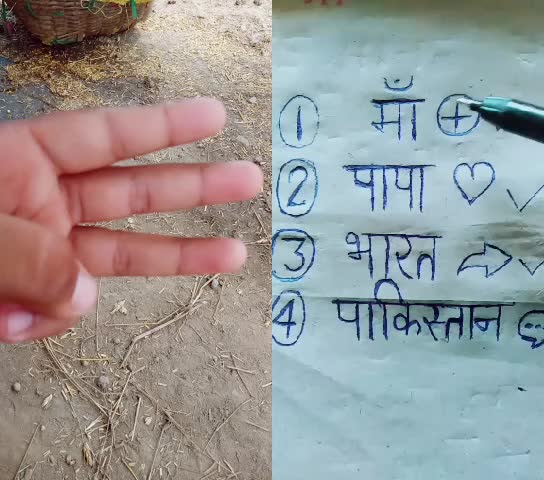 ① माँ
② पापा
③ भारत
④ पाकिस्तान